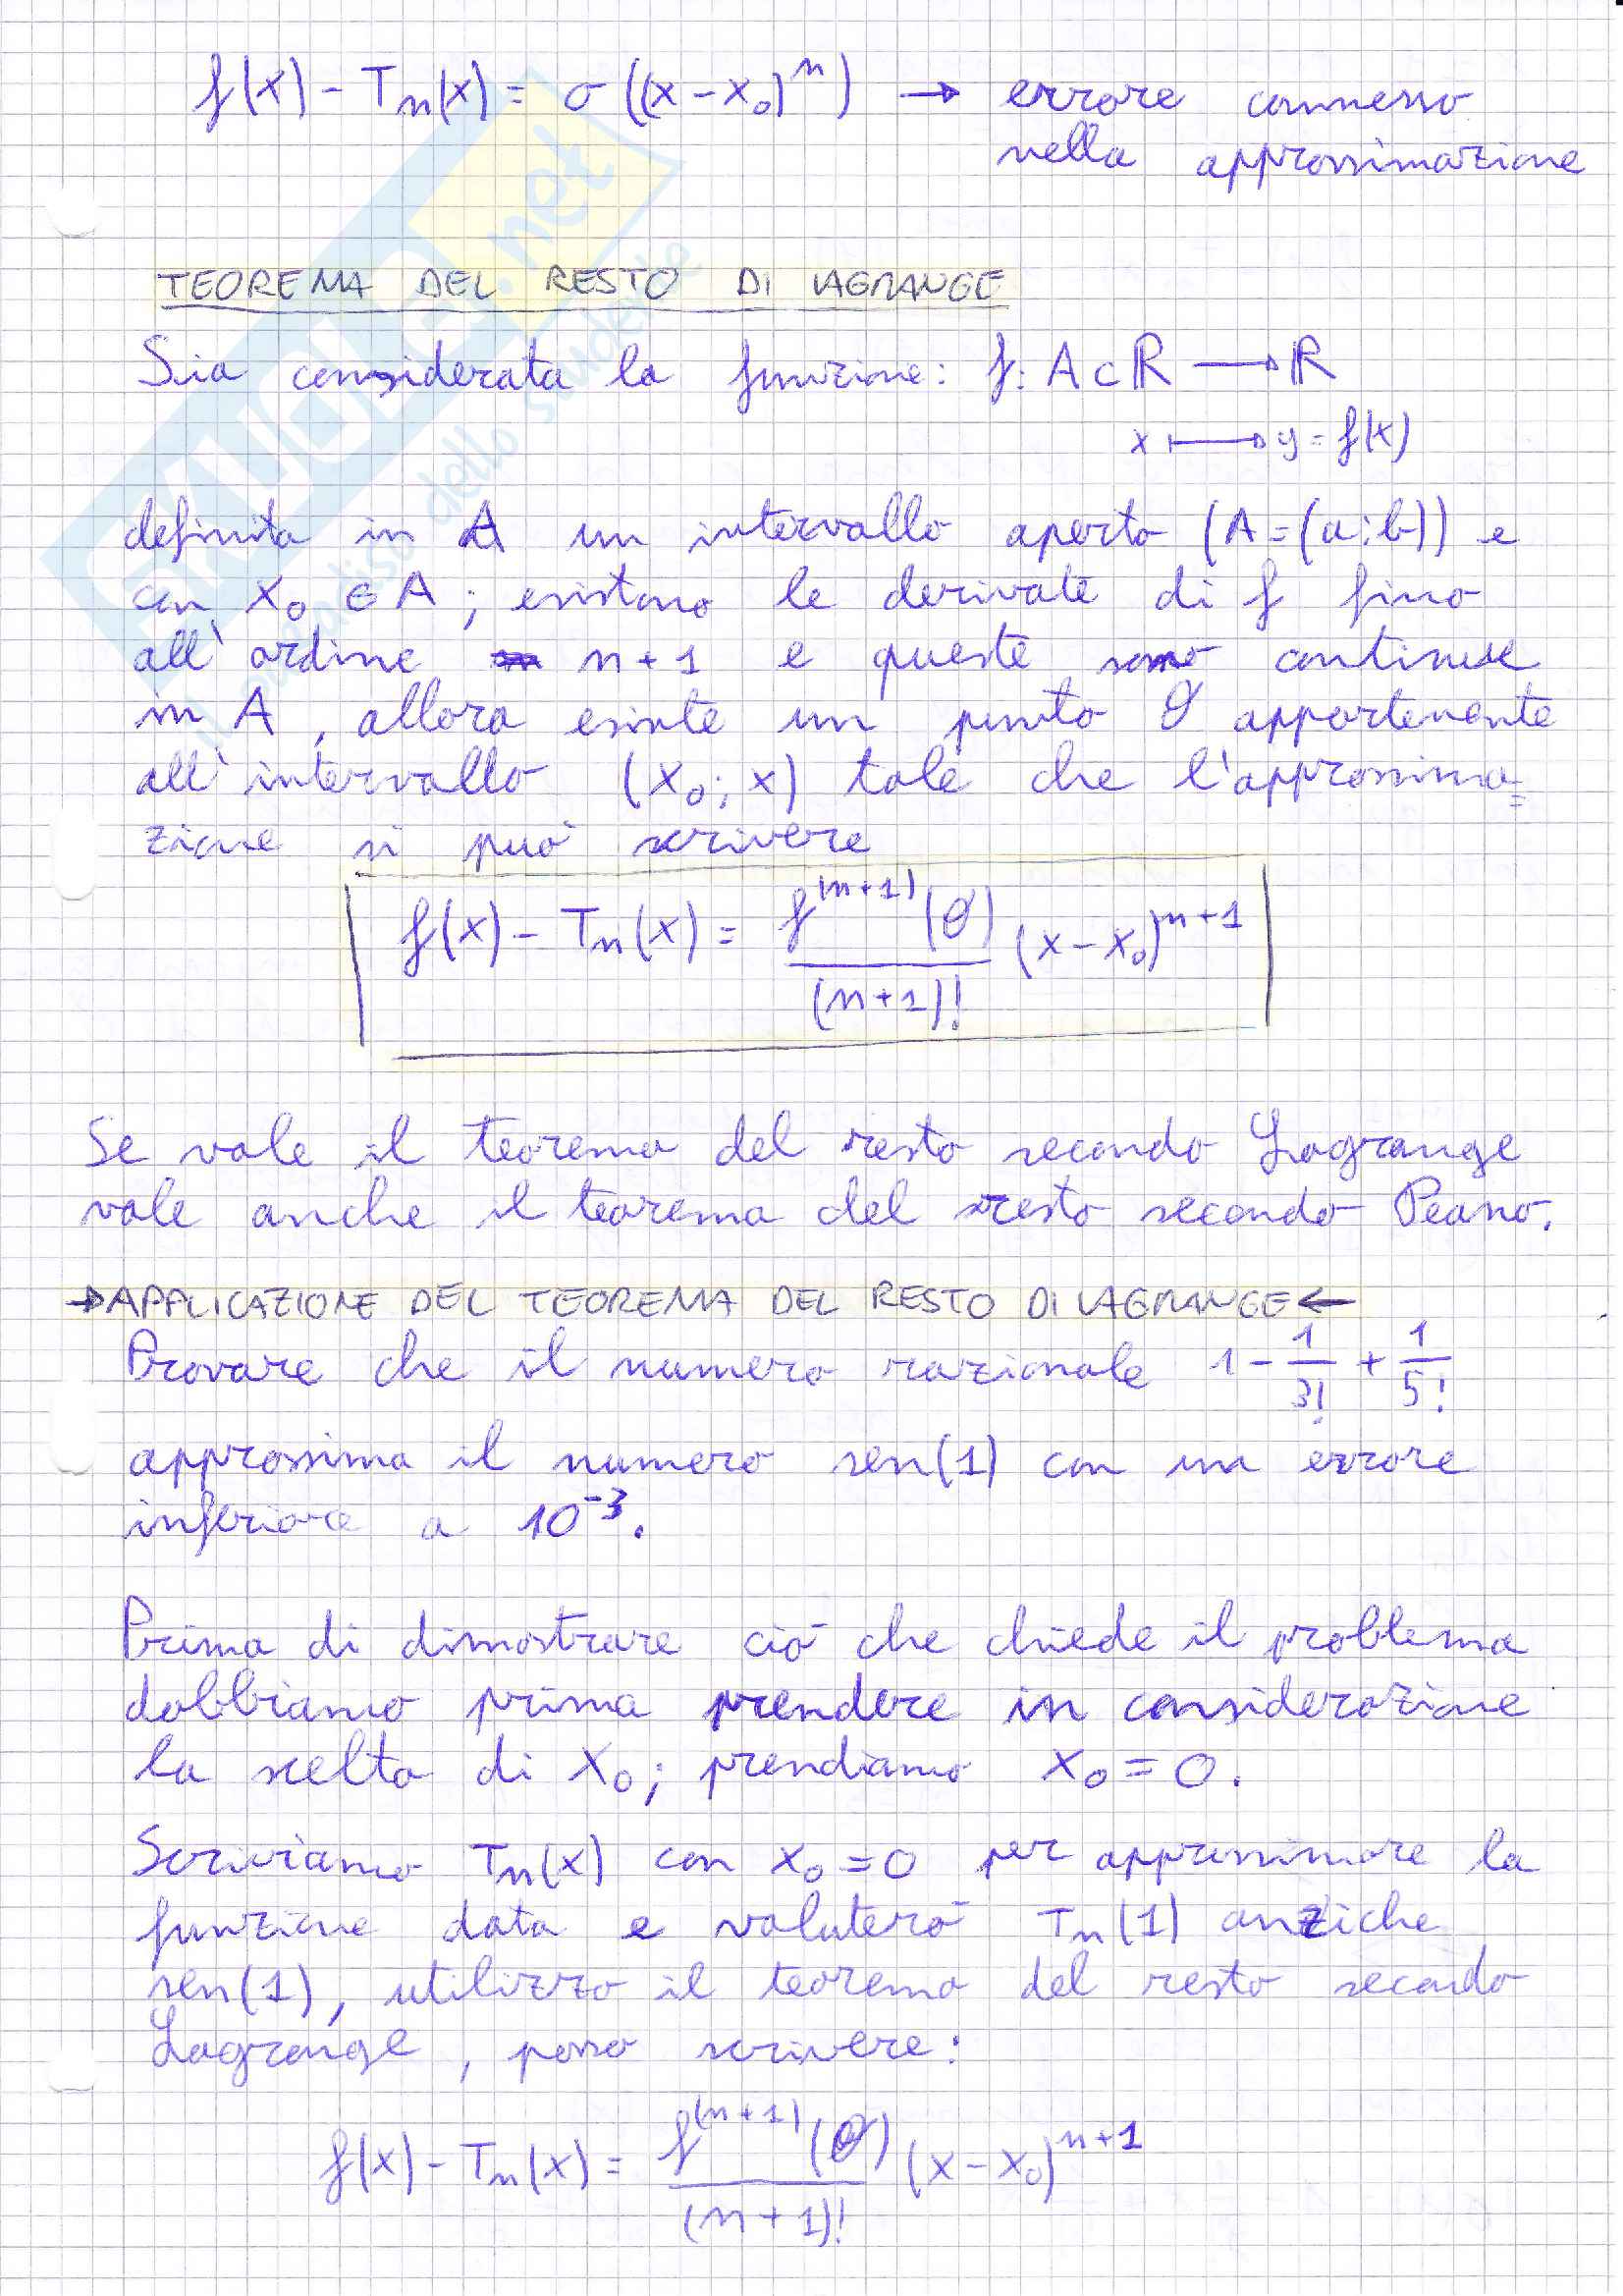 f(x) - Tn(x) = σ((x-x₀)ⁿ) → errore commesso
nella approssimazione
TEOREMA DEL RESTO DI LAGRANGE
Sia considerata la funzione: f: A⊂ℝ → ℝ
x ↦ y = f(x)
definita in A un intervallo aperto (A=(a;b)) e
con x₀ ∈ A; esistono le derivate di f fino
all'ordine n+1 e queste sono continue
in A, allora esiste un punto θ appartenente
all'intervallo (x₀; x) tale che l'approssima=
zione si può scrivere
f(x) - Tn(x) = f⁽ⁿ⁺¹⁾(θ)/(n+1)! (x-x₀)ⁿ⁺¹
Se vale il teorema del resto secondo Lagrange
vale anche il teorema del resto secondo Peano.
→ APPLICAZIONE DEL TEOREMA DEL RESTO DI LAGRANGE ←
Provare che il numero razionale 1 - 1/3! + 1/5!
approssima il numero sen(1) con un errore
inferiore a 10⁻³.
Prima di dimostrare ciò che chiede il problema
dobbiamo prima prendere in considerazione
la scelta di x₀; prendiamo x₀ = 0.
Scriviamo Tn(x) con x₀ = 0 per approssimare la
funzione data e valuterò Tn(1) anziche
sen(1), utilizzo il teorema del resto secondo
Lagrange, posso scrivere:
f(x) - Tn(x) = f⁽ⁿ⁺¹⁾(θ)/(n+1)! (x-x₀)ⁿ⁺¹